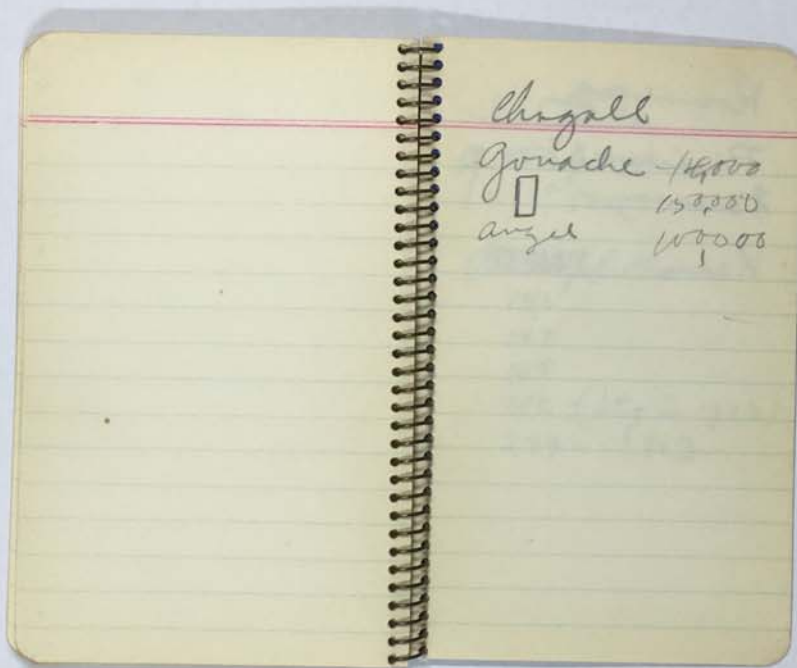 Chagall
Gouache - 18,000
150,000
angel 100,000